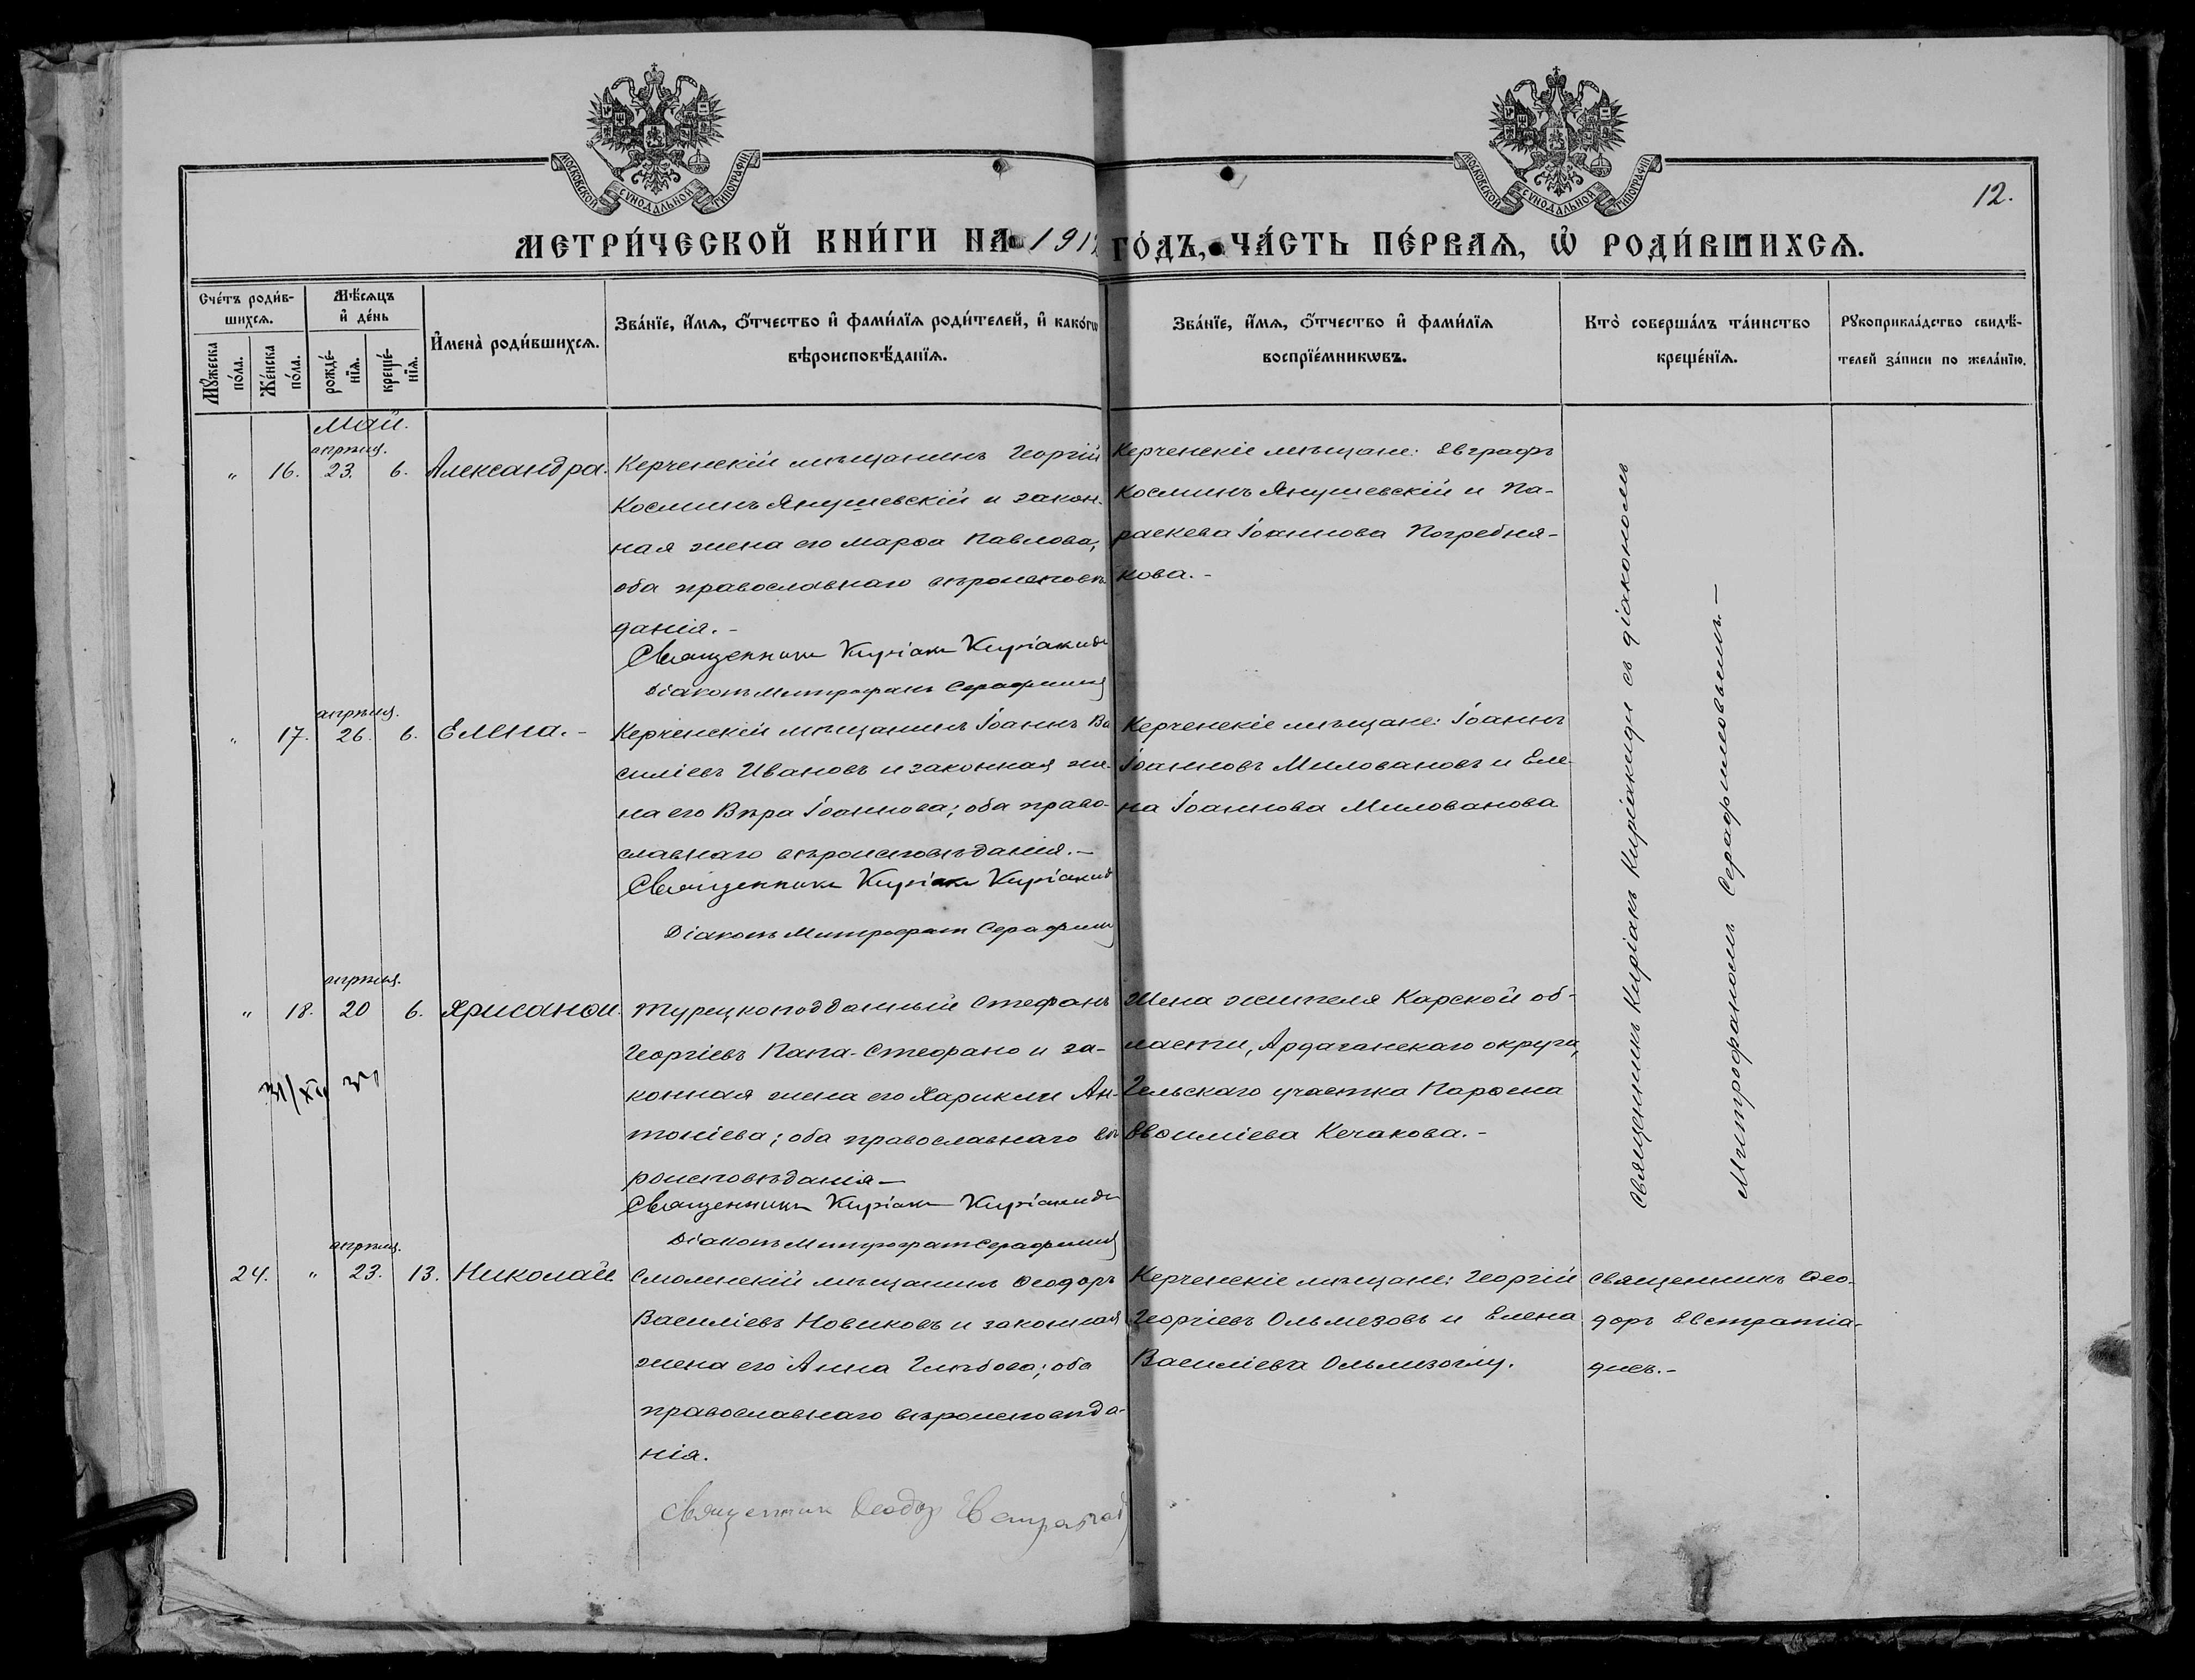 МОСКОВСКОЙ СѴНОДАЛЬНОЙ ТИПОГРАФІИ
МОСКОВСКОЙ СѴНОДАЛЬНОЙ ТИПОГРАФІИ
12.
МЕТРИ́ЧЕСКОЙ КНИ́ГИ НА 191
ГО́ДЪ, ЧА́СТЬ ПЕ́РВАѦ, Ѡ҆ РОДИ́ВШИХСѦ.
Сче́тъ роди́в-
шихсѧ.
Мѣ́сѧцъ
и҆ де́нь
Мꙋ́жеска
по́ла.
Же́нска
по́ла.
рожде́-
нїѧ.
креще́-
нїѧ.
И҆мена̀ роди́вшихсѧ.
Зва́нїе, и҆́мѧ, ѻ҆́тчество и҆ фами́лїѧ роди́телей, и҆ како́гѡ
вѣроисповѣ́данїѧ.
Зва́нїе, и҆́мѧ, ѻ҆́тчество и҆ фами́лїѧ
воспрїе́мникѡвъ.
Кто̀ соверша́лъ та́инство
креще́нїѧ.
Рꙋкоприкла́дство свидѣ́-
телей за́писи по жела́нїю.
Май.
апрѣля.
" 16. 23. 6. Александра.
Керченскій мѣщанинъ Георгій
Косминъ Янушевскій и закон-
ная жена его Марѳа Павлова;
оба православнаго вѣроисповѣ
данія.-
Священникъ Киріакъ Киріакиди
Діаконъ Митрофанъ Серафимов
Керченскіе мѣщане: Евграфъ
Косминъ Янушевскій и Па-
раскева Іоаннова Погребня-
кова.-
Священникъ Киріакъ Киріакиди съ діакономъ
Митрофаномъ Серафимовымъ.-
апрѣля.
" 17. 26. 6. Елена.-
Керченскій мѣщанинъ Іоаннъ Ва
силіевъ Ивановъ и законная же-
на его Вѣра Іоаннова; оба право-
славнаго вѣроисповѣданія.-
Священникъ Киріакъ Киріакид
Діаконъ Митрофанъ Серафимов
Керченскіе мѣщане: Іоаннъ
Іоанновъ Миловановъ и Еле-
на Іоаннова Милованова
апрѣля.
" 18. 20 6. Хрисанои.
Турецкоподданный Стефанъ
Георгіевъ Папа-Стефано и за-
конная жена его Харикли Ан-
тоніева; оба православнаго вѣ
роисповѣданія-
Священникъ Киріакъ Киріакиди
Діаконъ Митрофанъ Серафимов
Жена жителя Карской об-
ласти, Ардаганскаго округа,
Гельскаго участка Парѳена
Евѳиміева Кечакова.-
апрѣля.
24. " 23. 13. Николай
Смоленскій мѣщанинъ Ѳеодоръ
Василіевъ Новиковъ и законная
жена его Анна Глѣбова; оба
православнаго вѣроисповѣда-
нія.
Священникъ Ѳеодоръ Евстратіад
Керченскіе мѣщане: Георгій
Георгіевъ Ольмезовъ и Елена
Василіева Ольмезоглу.
Священникъ Ѳео-
доръ Евстратіа-
дисъ.-